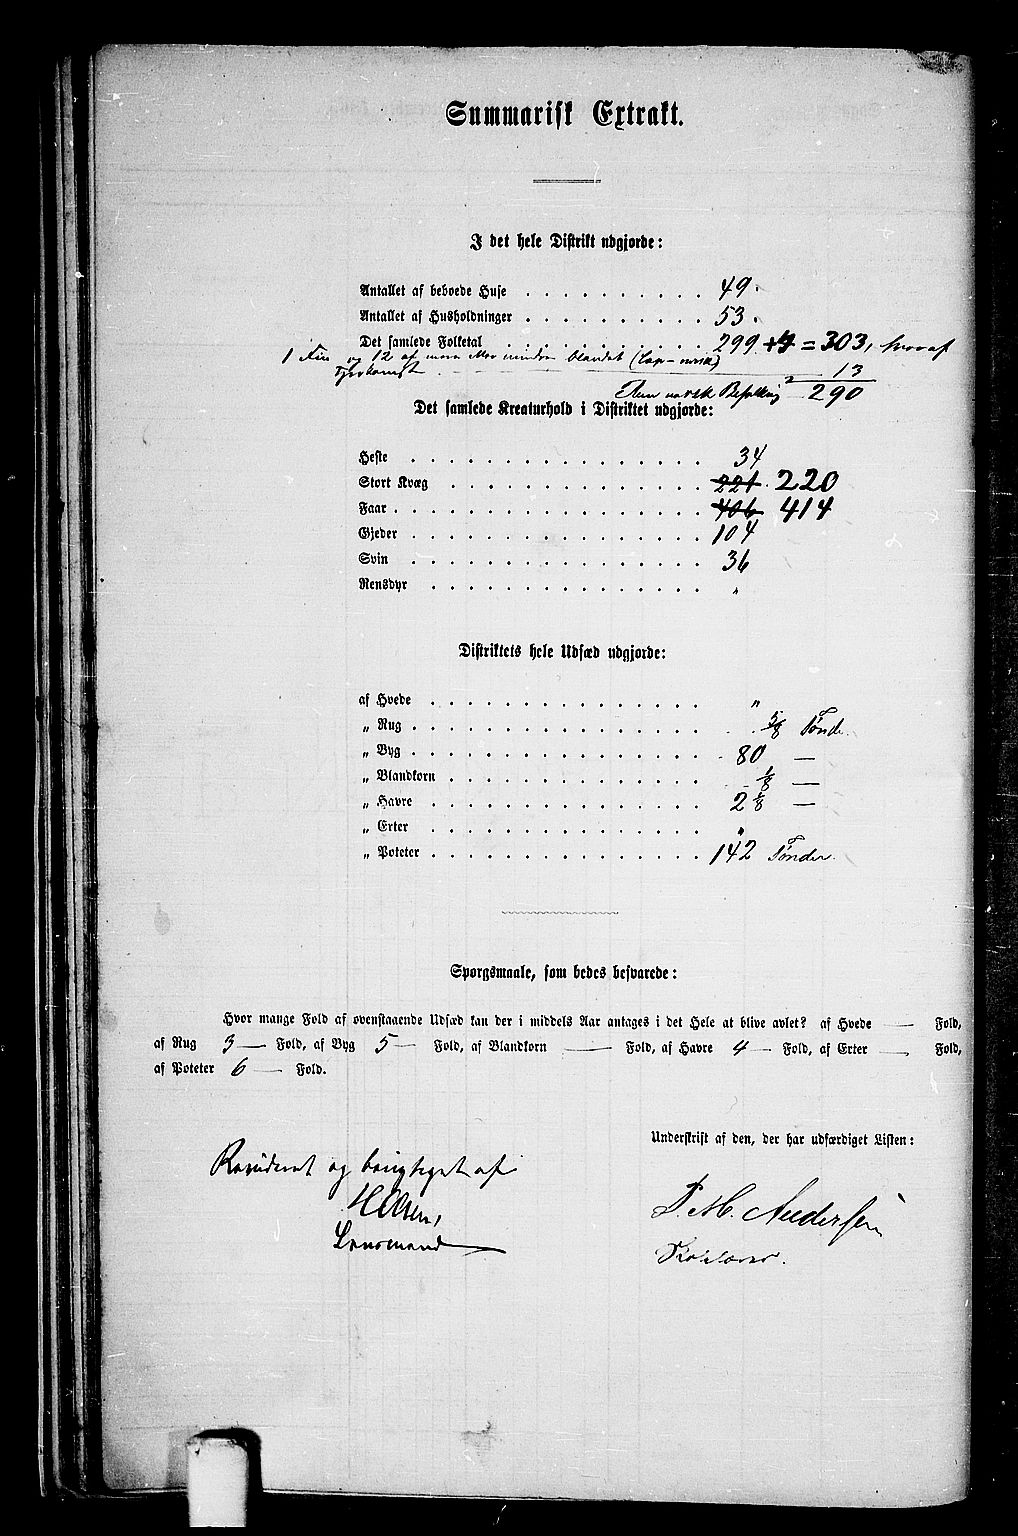 Summarisk Extrakt.
I det hele Distrikt udgjorde:
Antallet af beboede Huse . . . . . . . . . . 49.
Antallet af Husholdninger . . . . . . . . . . 53.
Det samlede Folketal . . . . . . . . . . 299 + 4 = 303, hvoraf
1 Fin og 12 af mere eller mindre blandet (Lap-norsk)
Herkomst 13
Ren norsk Befolkning 290
Det samlede Kreaturhold i Distriktet udgjorde:
Heste . . . . . . . . . . 34
Stort Kvæg . . . . . . . . . . 221 220
Faar . . . . . . . . . . 406 414
Gjeder . . . . . . . . . . 104
Svin . . . . . . . . . . 36
Rensdyr . . . . . . . . . . "
Distriktets hele Udsæd udgjorde:
af Hvede . . . . . . . . . . "
„ Rug . . . . . . . . . . 5/8 Tønde
„ Byg . . . . . . . . . . 80 —
„ Blandkorn . . . . . . . . . . 1/8 —
„ Havre . . . . . . . . . . 2 —
„ Erter . . . . . . . . . . "
„ Poteter . . . . . . . . . . 142 Tønder.
Spørgsmaale, som bedes besvarede:
Hvor mange Fold af ovenstaaende Udsæd kan der i middels Aar antages i det Hele at blive avlet? af Hvede — Fold,
af Rug 3 — Fold, af Byg 5 — Fold, af Blandkorn — Fold, af Havre 4 — Fold, af Erter — Fold,
af Poteter 6 — Fold.
Underskrift af den, der har udfærdiget Listen:
Revideret og beigtiget af
H Olsen,
Lensmand
P. M. Andersen